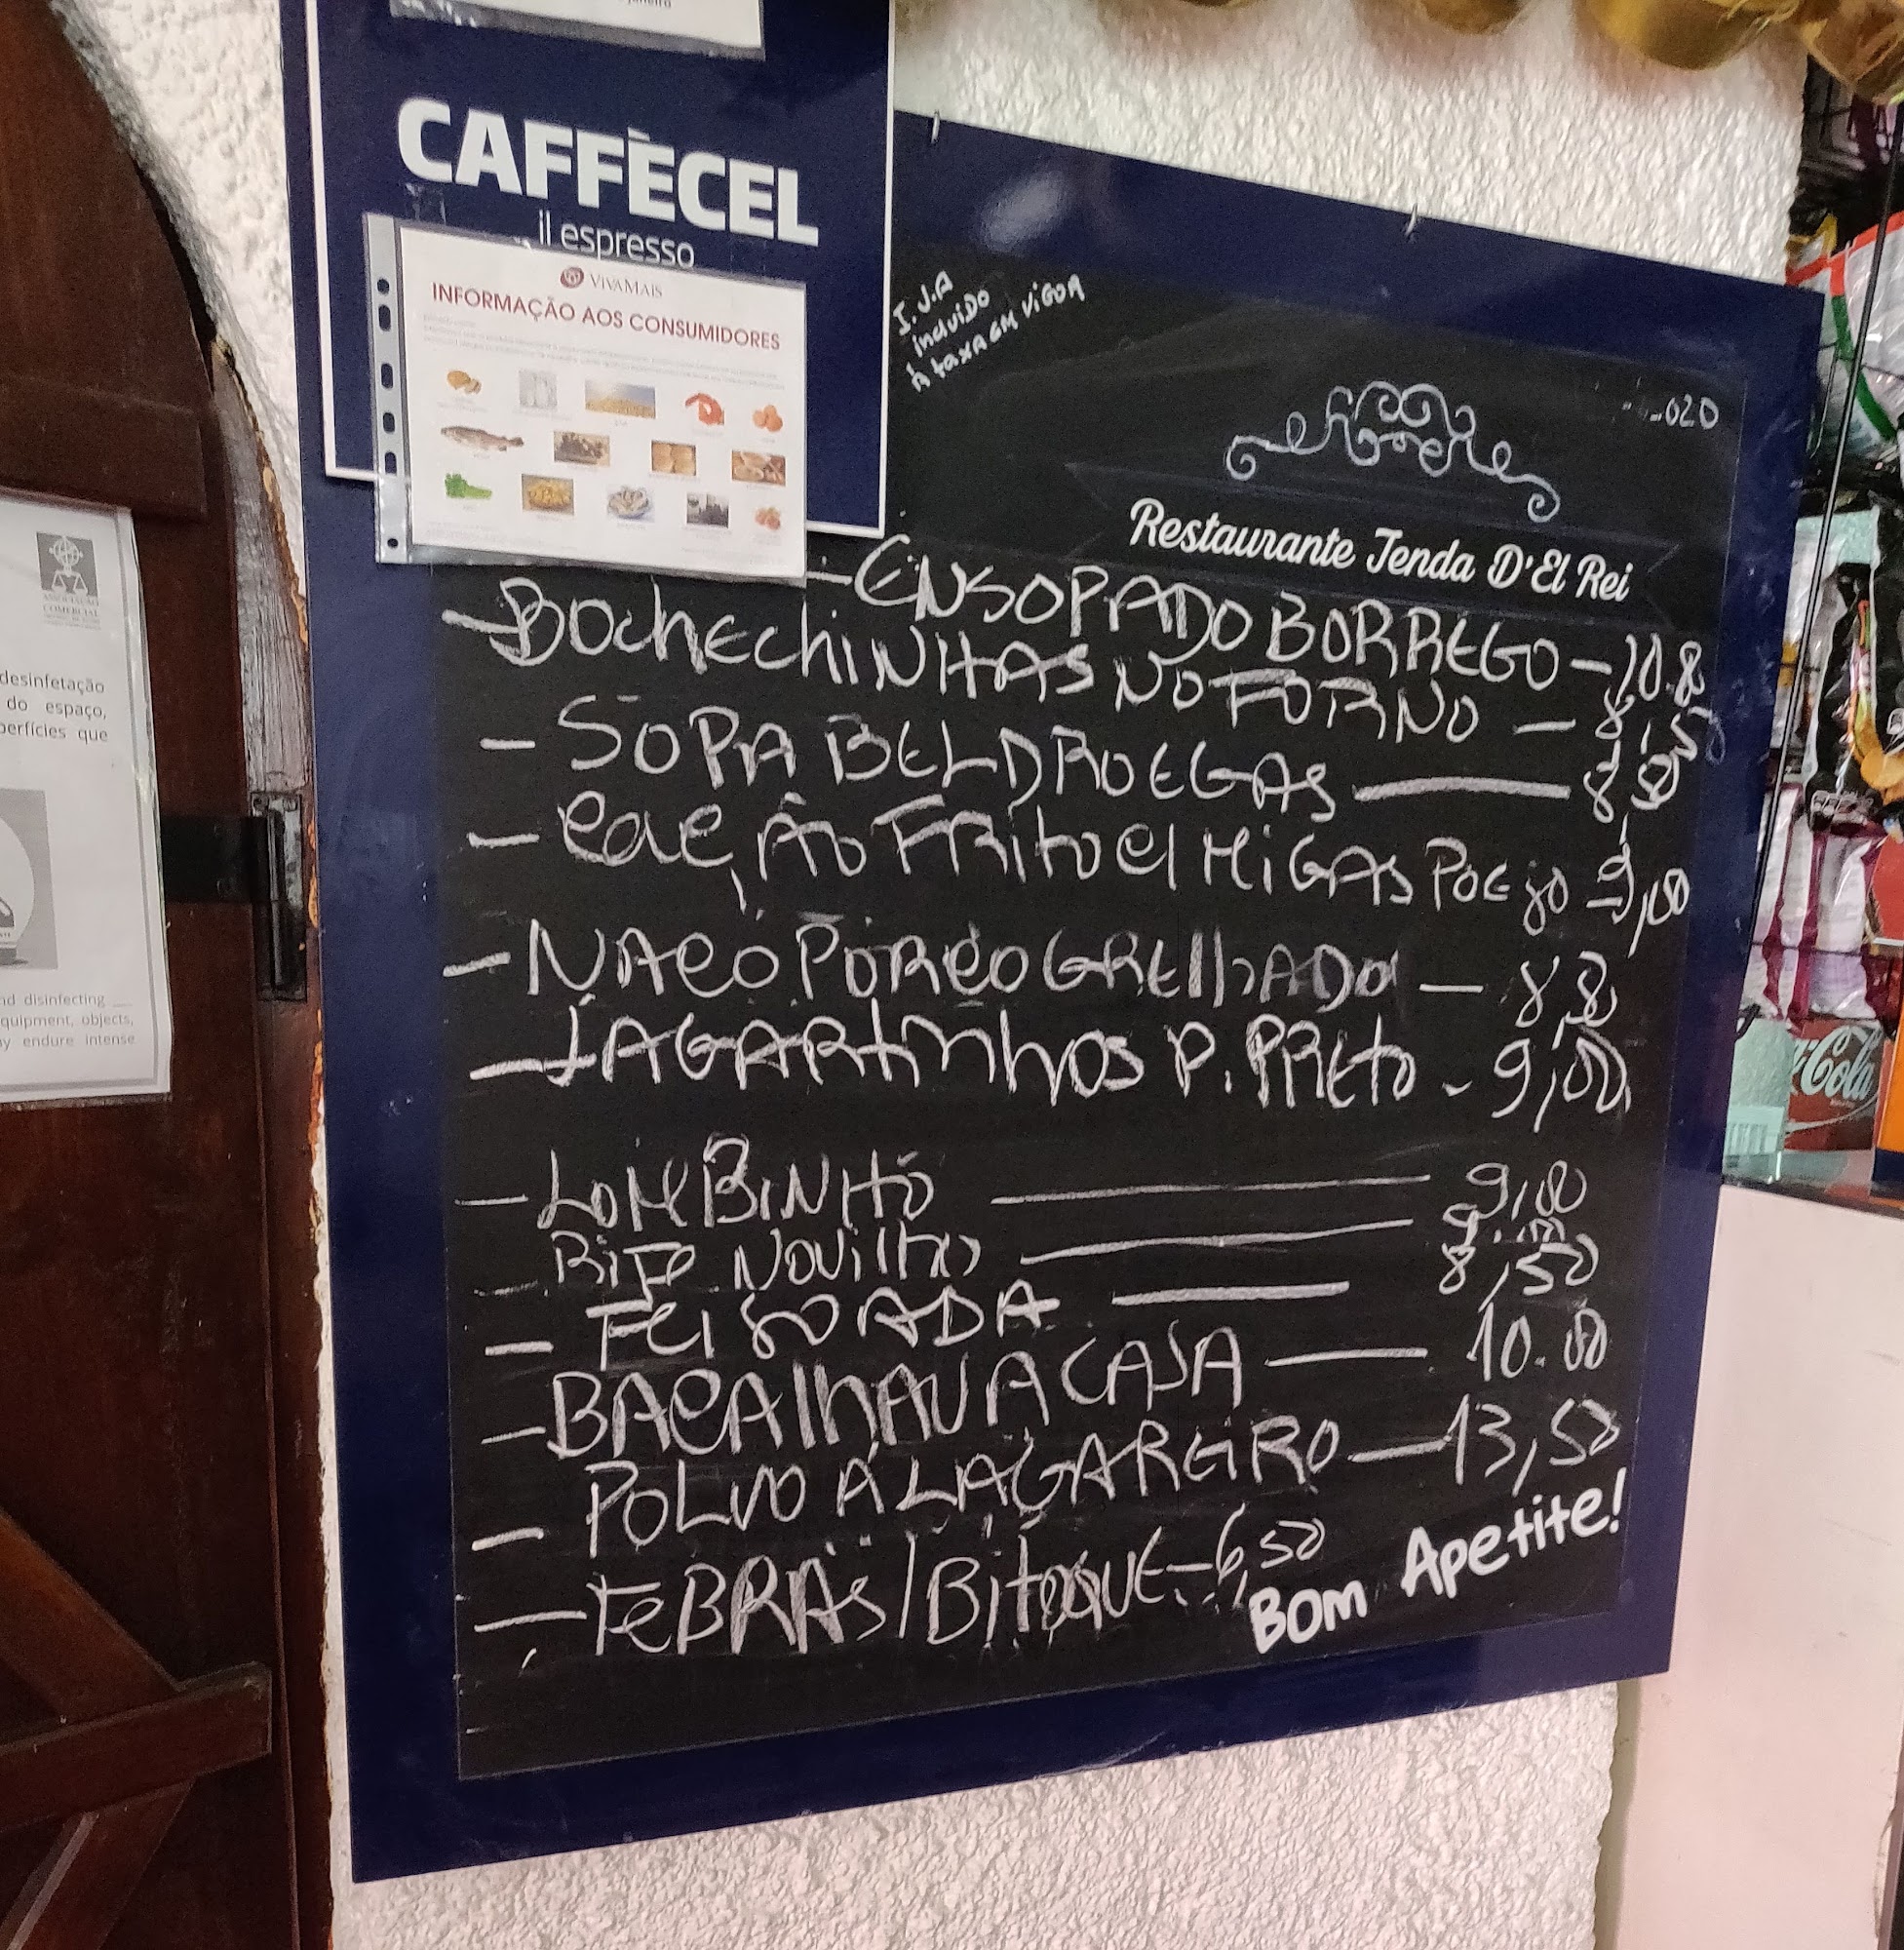 janeiro
CAFFÈCEL
il espresso
VIVAMAIS
INFORMAÇÃO AOS CONSUMIDORES
I.V.A
incluido
à taxa em vigor
020
Restaurante Tenda D'El Rei
- ENSOPADO BORREGO - 10.8
- BochechiNHAS NO FORNO - 8,50
- SOPA BELDROEGAS - 8,50
- CAÇÃO FRito c/ MiGAS POEjo - 9,00
- NACO PORCO GRELhADO - 8,8
- LAGARtinhos P. PREto - 9,00
- LOMBINHO - 9,00
- BiFE Novilho - 9,00
- FEIJOADA - 8,50
- BACAlhAU A CASA - 10.00
- POLVO Á LAGAREIRO - 13,50
- FeBRAS / BitOQUE - 6,50
Bom Apetite!
ASSOCIAÇÃO
COMERCIAL
desinfetação
do espaço,
perfícies que
nd disinfecting
equipment, objects,
ay endure intense
Coca-Cola